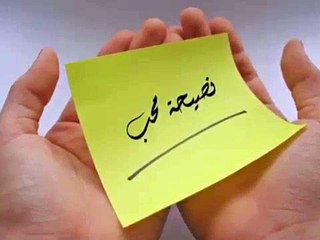 نصيحة محب